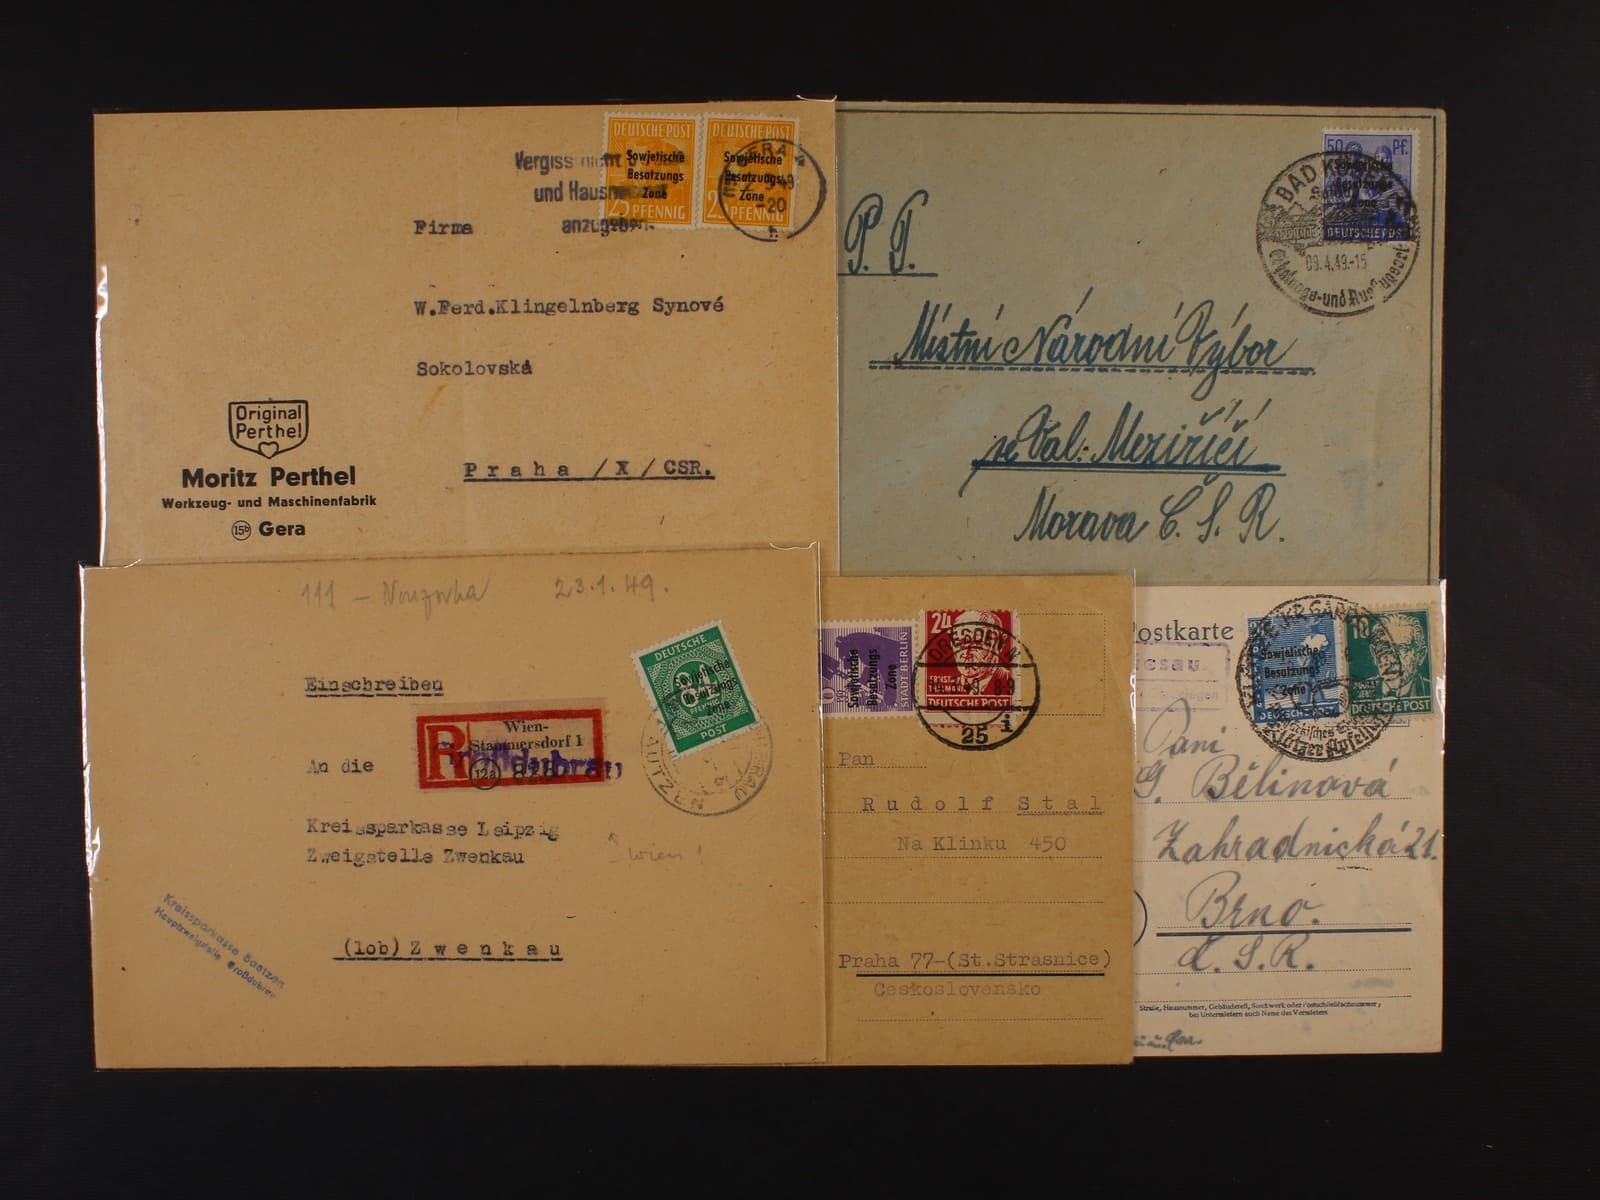 Vergiss nicht
und Haus
anzugeben.
DEUTSCHE POST
Sowjetische
Besatzungs
Zone
25 PFENNIG
DEUTSCHE POST
Sowjetische
Besatzungs
Zone
PFENNIG
GERA
-20
Firma
W.Ferd.Klingelnberg Synové
Sokolovská
Praha /X/CSR.
Original
Perthel
Moritz Perthel
Werkzeug- und Maschinenfabrik
15b Gera
50 Pf.
Besatzungs
Zone
DEUTSCHE POST
BAD
09.4.49.-15
P. T.
Místní Národní Výbor
ve Val. Meziříčí
Morava C. S. R.
111 - 23.1.49.
Einschreiben
DEUTSCHE
Sowjetische
Besatzungs
Zone
POST
BAUTZEN
R
Wien-
Stammersdorf 1
(12a)
Großdubrau
An die
Kreissparkasse Leipzig
Zweigstelle Zwenkau
Wien
(10b) Zwenkau
Kreissparkasse Bautzen
Hauptzweigstelle Großdubrau
Sowjetische
Besatzungs
Zone
STADT BERLIN
24
ERNST
THÄLMANN
DEUTSCHE POST
DRESDEN
8-9
25
Pan
Rudolf Stal
Na Klinku 450
Praha 77-(St.Strasnice)
Ceskoslovensko
Postkarte
Sowjetische
Besatzungs
Zone
DEUTSCHE POST
10
DEUTSCHE POST
Paní
G. Bělinová
Zahradnická 21.
Brno.
Č. S. R.
Straße, Hausnummer, Gebäudeteil, Stockwerk oder Postschließfachnummer;
bei Untermietern auch Name des Vermieters